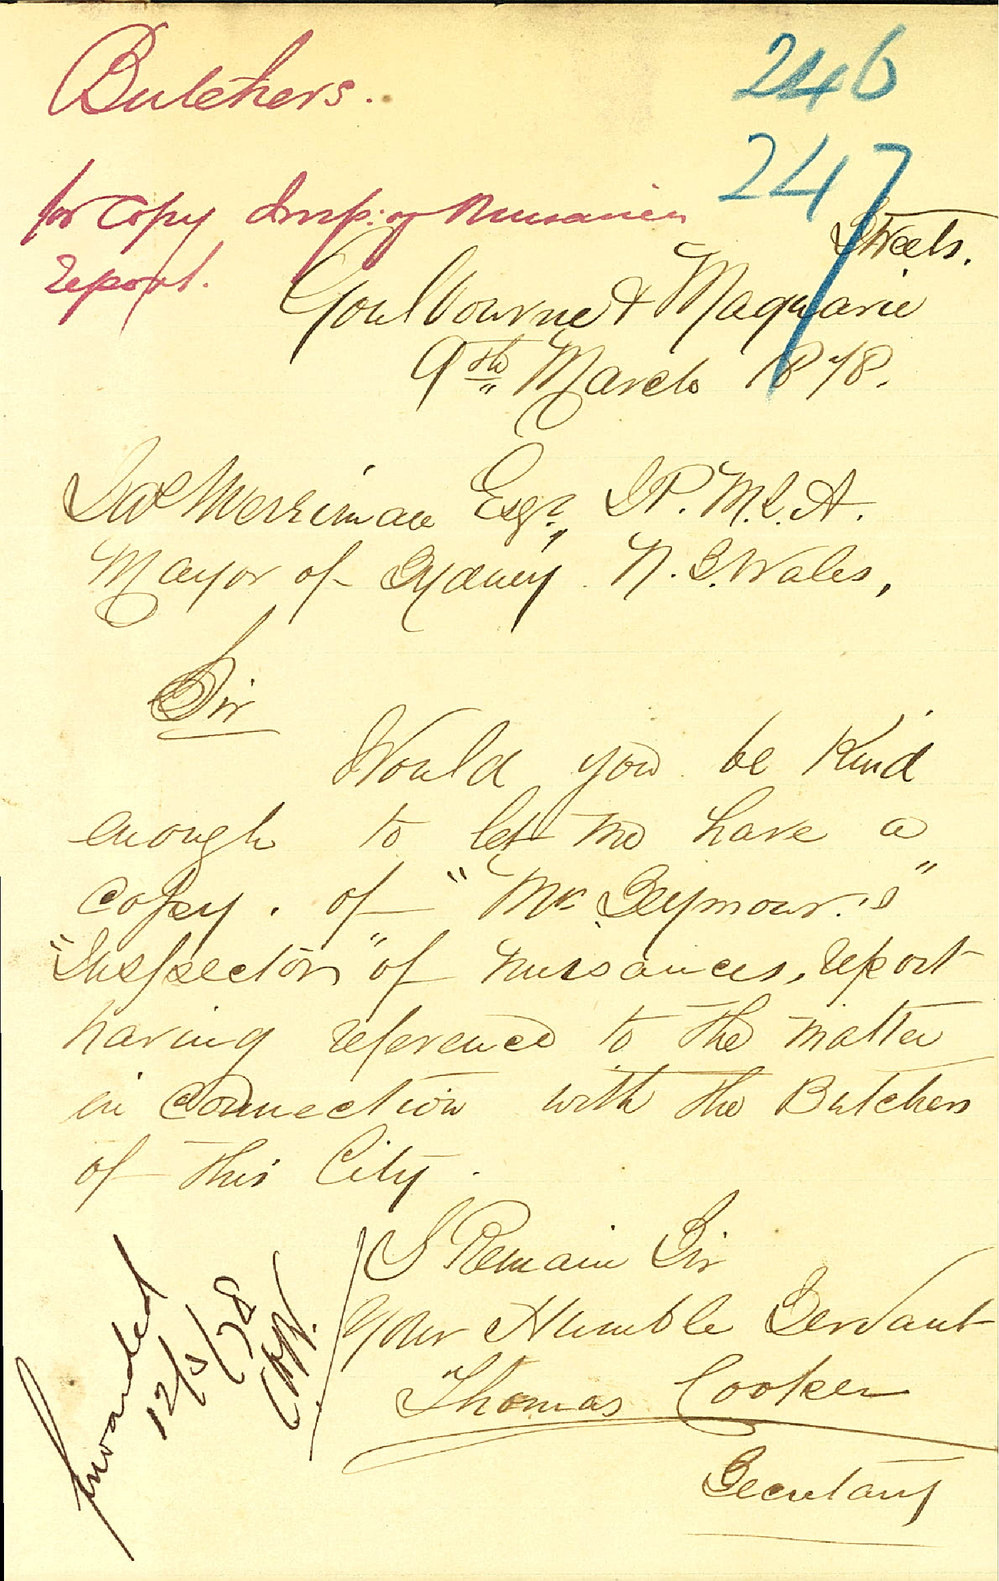 Butchers.
246
247
for Copy Insp: of Nuisances
report.
Streets.
Goulbourne & Maquarie
9th March 1878.
Jas Merriman Esqr., J.P. M.L.A.
Mayor of Sydney N.S. Wales,
Sir
Would you be Kind
enough to let me have a
Copy. of "Mr Seymour's"
"Inspector" of nuisances, report
having reference to the matter
in connection with the Butchers
of this City.
I Remain Sir
Your Humble Servant
Thomas Cooker
Secretary
forwarded
12/3/78